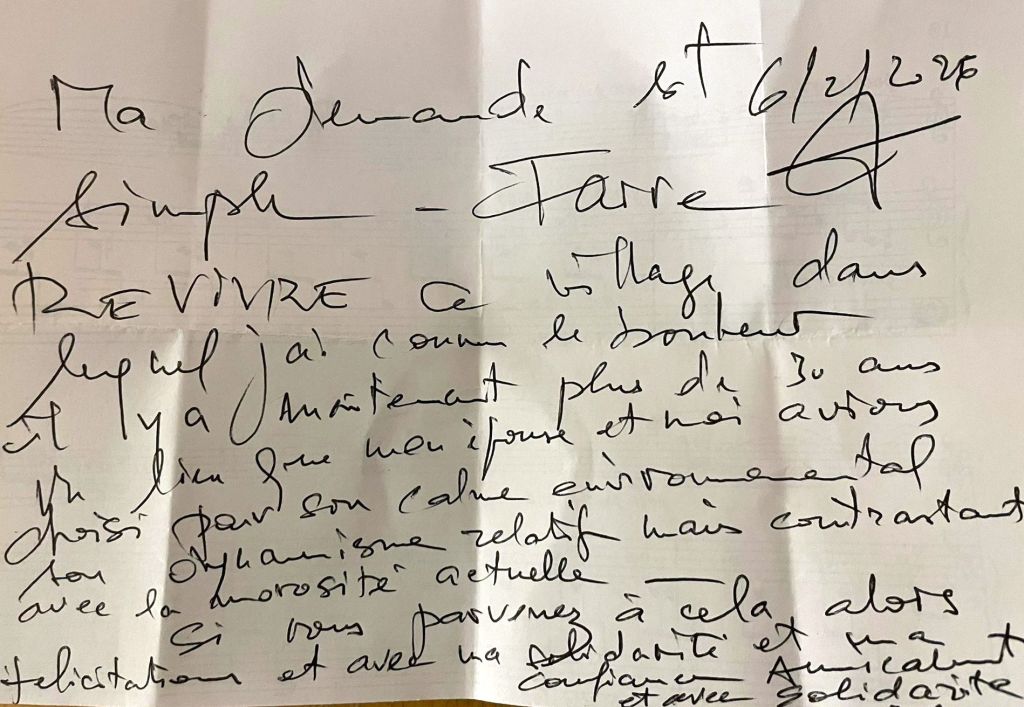 Ma demande est 6/2/2026
simple - Faire
REVIVRE ce village dans
lequel j'ai connu le bonheur
il y a maintenant plus de 30 ans
un lieu que mon épouse et moi avions
choisi pour son calme environnemental
son dynamisme relatif mais contrastant
avec la morosité actuelle
Si vous parvenez à cela, alors
félicitations et avec ma solidarité et ma
confiance Amicalement
et avec solidarité